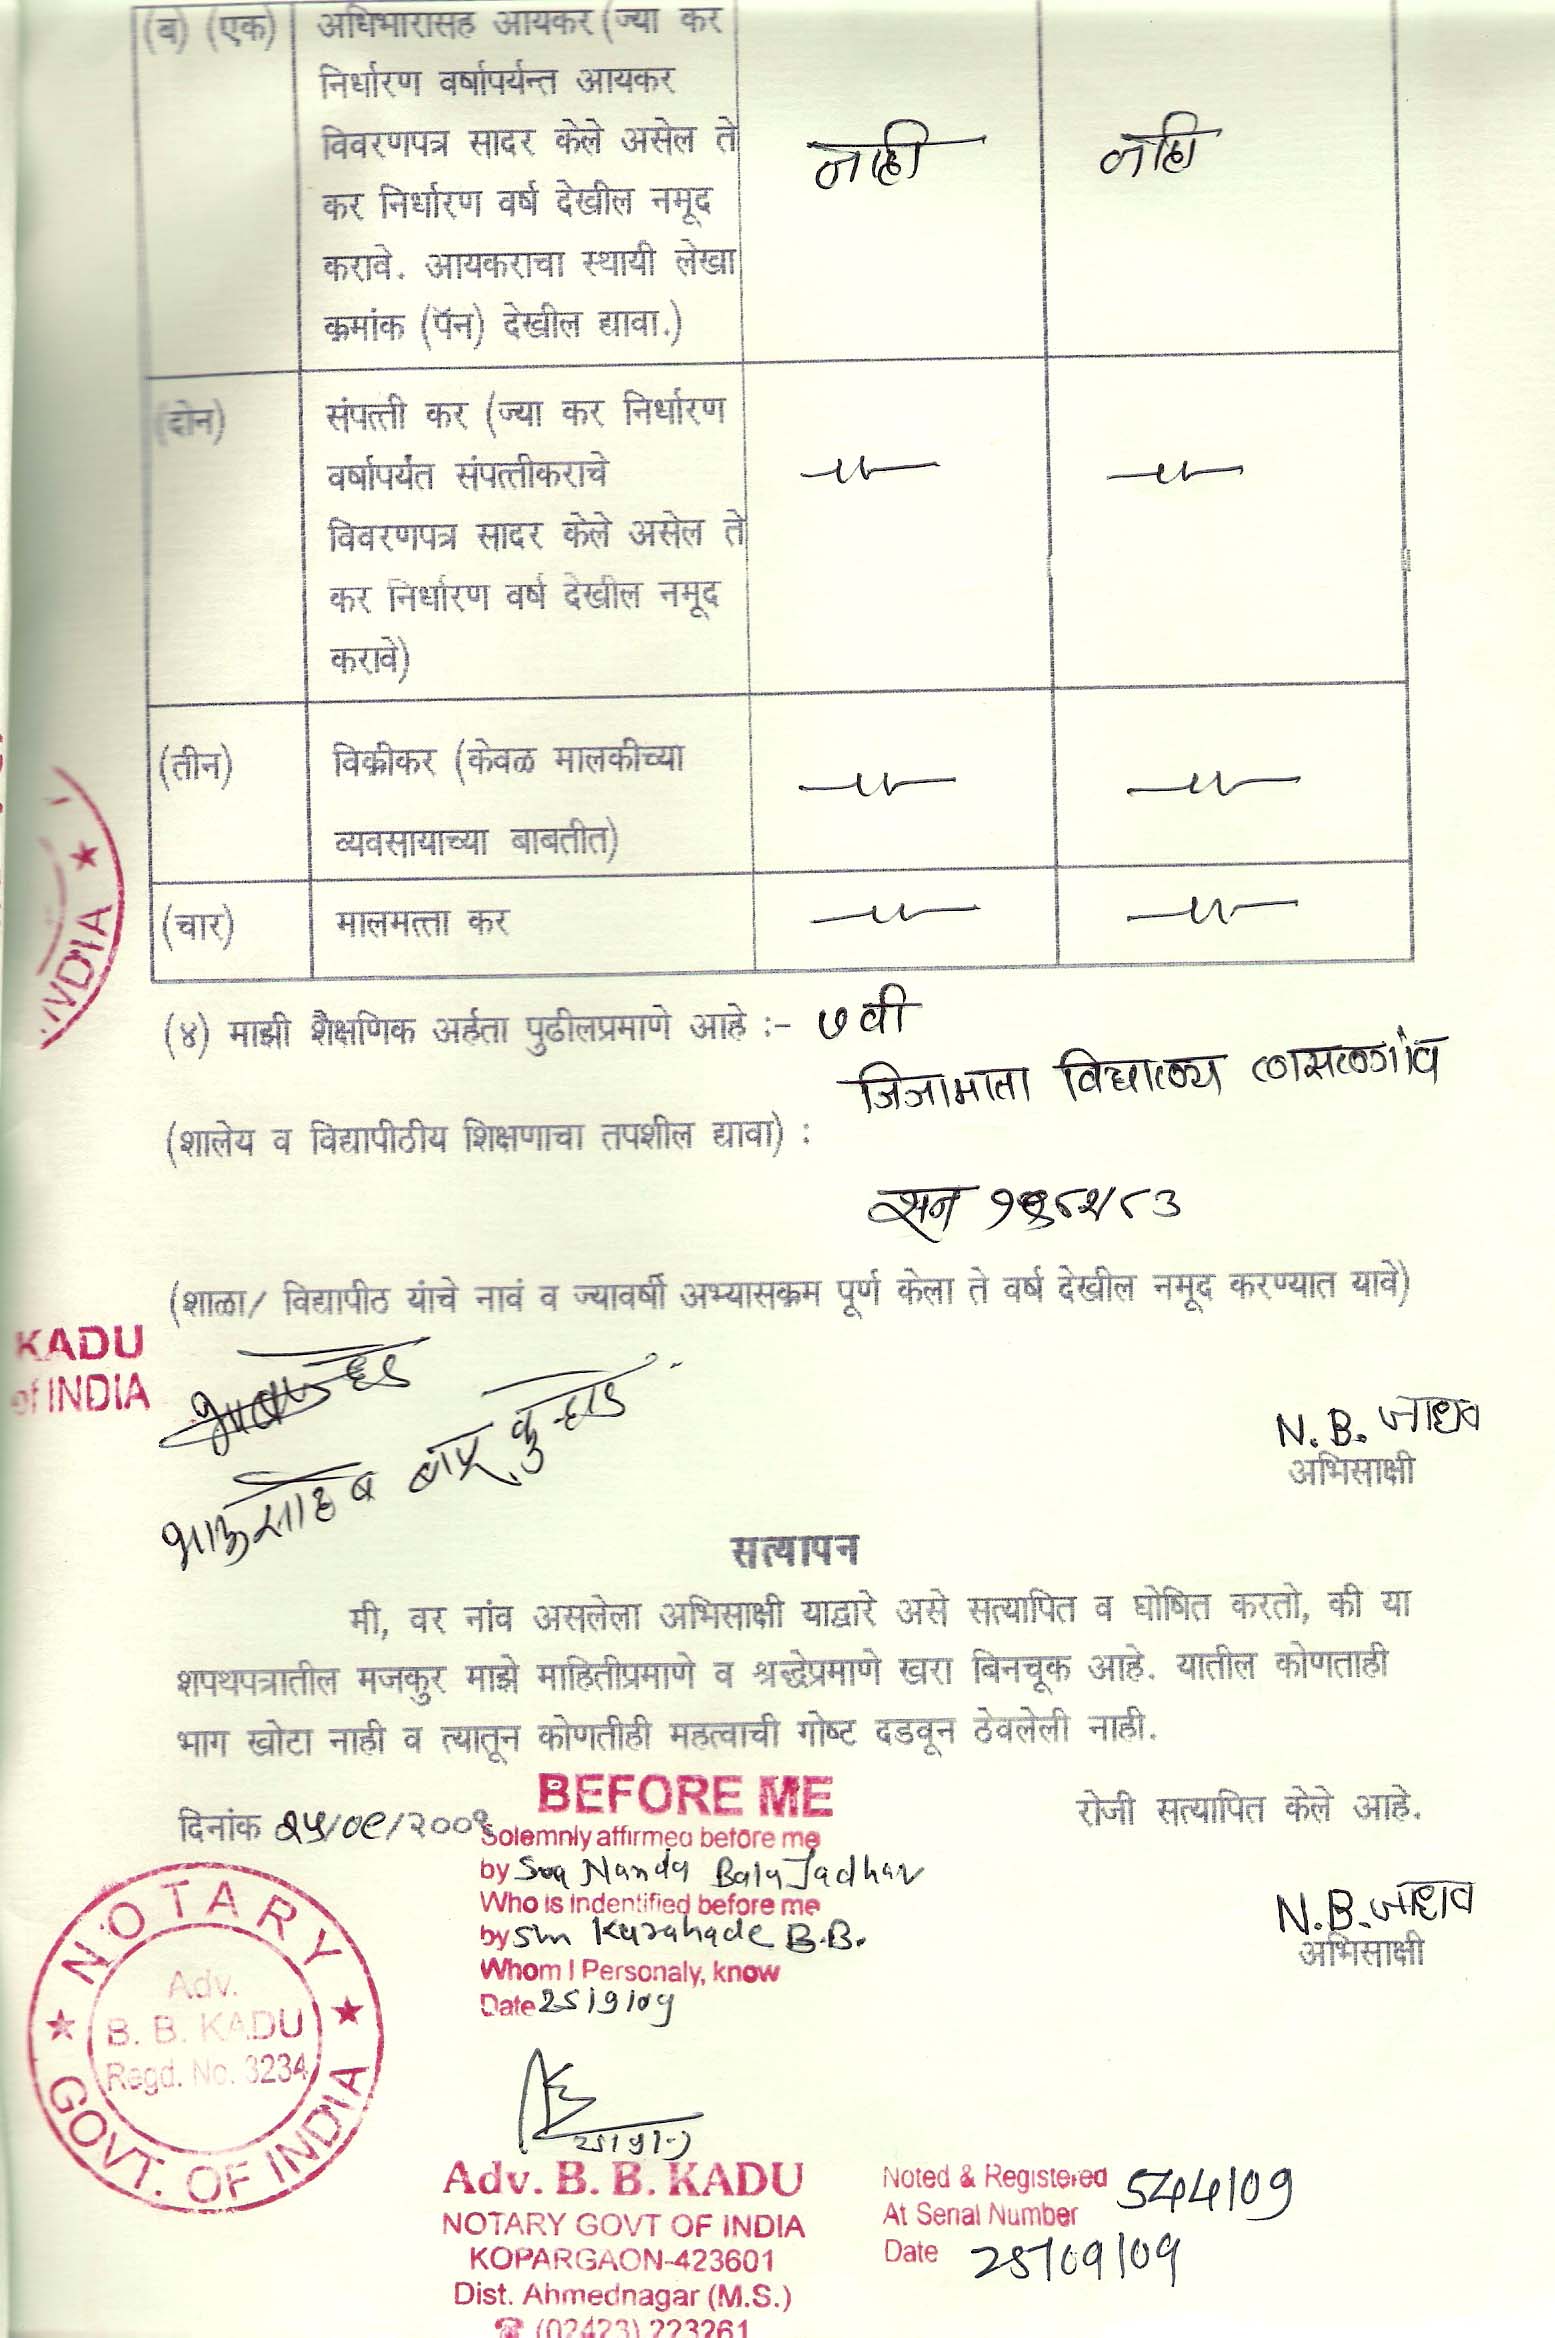 (ब) (एक) अधिभारासह आयकर (ज्या कर
निर्धारण वर्षापर्यन्त आयकर
विवरणपत्र सादर केले असेल ते नाही नाही
कर निर्धारण वर्ष देखील नमूद
करावे. आयकराचा स्थायी लेखा
क्रमांक (पॅन) देखील द्यावा.)
(दोन) संपत्ती कर (ज्या कर निर्धारण
वर्षापर्यंत संपत्तीकराचे —"— —"—
विवरणपत्र सादर केले असेल ते
कर निर्धारण वर्ष देखील नमूद
करावे)
(तीन) विक्रीकर (केवळ मालकीच्या —"— —"—
व्यवसायाच्या बाबतीत)
(चार) मालमत्ता कर —"— —"—
INDIA
(४) माझी शैक्षणिक अर्हता पुढीलप्रमाणे आहे :- ७ वी
जिजामाता विद्यालय लासलगांव
(शालेय व विद्यापीठीय शिक्षणाचा तपशील द्यावा) :
सन १९८२/८३
(शाळा/ विद्यापीठ यांचे नावं व ज्यावर्षी अभ्यासक्रम पूर्ण केला ते वर्ष देखील नमूद करण्यात यावे)
KADU
of INDIA
भाऊसाहेब बापू कुऱ्हाडे
N. B. जाधव
अभिसाक्षी
सत्यापन
मी, वर नांव असलेला अभिसाक्षी याद्वारे असे सत्यापित व घोषित करतो, की या
शपथपत्रातील मजकुर माझे माहितीप्रमाणे व श्रद्धेप्रमाणे खरा बिनचूक आहे. यातील कोणताही
भाग खोटा नाही व त्यातून कोणतीही महत्वाची गोष्ट दडवून ठेवलेली नाही.
BEFORE ME
दिनांक २५/०९/२००९ रोजी सत्यापित केले आहे.
Solemnly affirmed before me
by Sou Nanda Bala Jadhav
Who is indentified before me
by Shri Kurahade B.B.
Whom I Personaly, know
Date 25/9/09
N.B. जाधव
अभिसाक्षी
NOTARY
Adv.
B. B. KADU
Regd. No. 3234
GOVT. OF INDIA
Adv. B. B. KADU
NOTARY GOVT OF INDIA
KOPARGAON-423601
Dist. Ahmednagar (M.S.)
☎ (02423) 223261
Noted & Registered 544/09
At Serial Number
Date 25/09/09